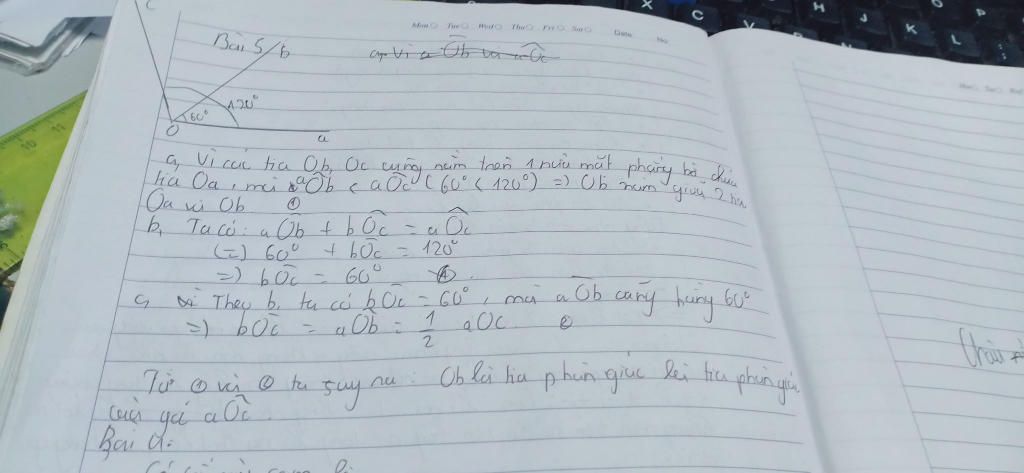 C
Bài 5
b
120°
60°
O
a
Mon Tue Wed Thu Fri Sat Date No
a, Vì a Ôb và a Ôc
a, Vì các tia Ob, Oc cùng nằm trên 1 nửa mặt phẳng bờ chứa
tia Oa, mà aÔb < aÔc (60° < 120°) => Ob nằm giữa 2 tia
Oa và Ob ①
b, Ta có: aÔb + bÔc = aÔc
(=) 60° + bÔc = 120°
=) bÔc = 60°
c, Theo b, ta có bÔc = 60°, mà aÔb cũng bằng 60°
=) bÔc = aÔb = 1/2 aOc ②
Từ ① và ② ta suy ra: Ob là tia phân giác là tia phân giác
của góc aÔc
Bài